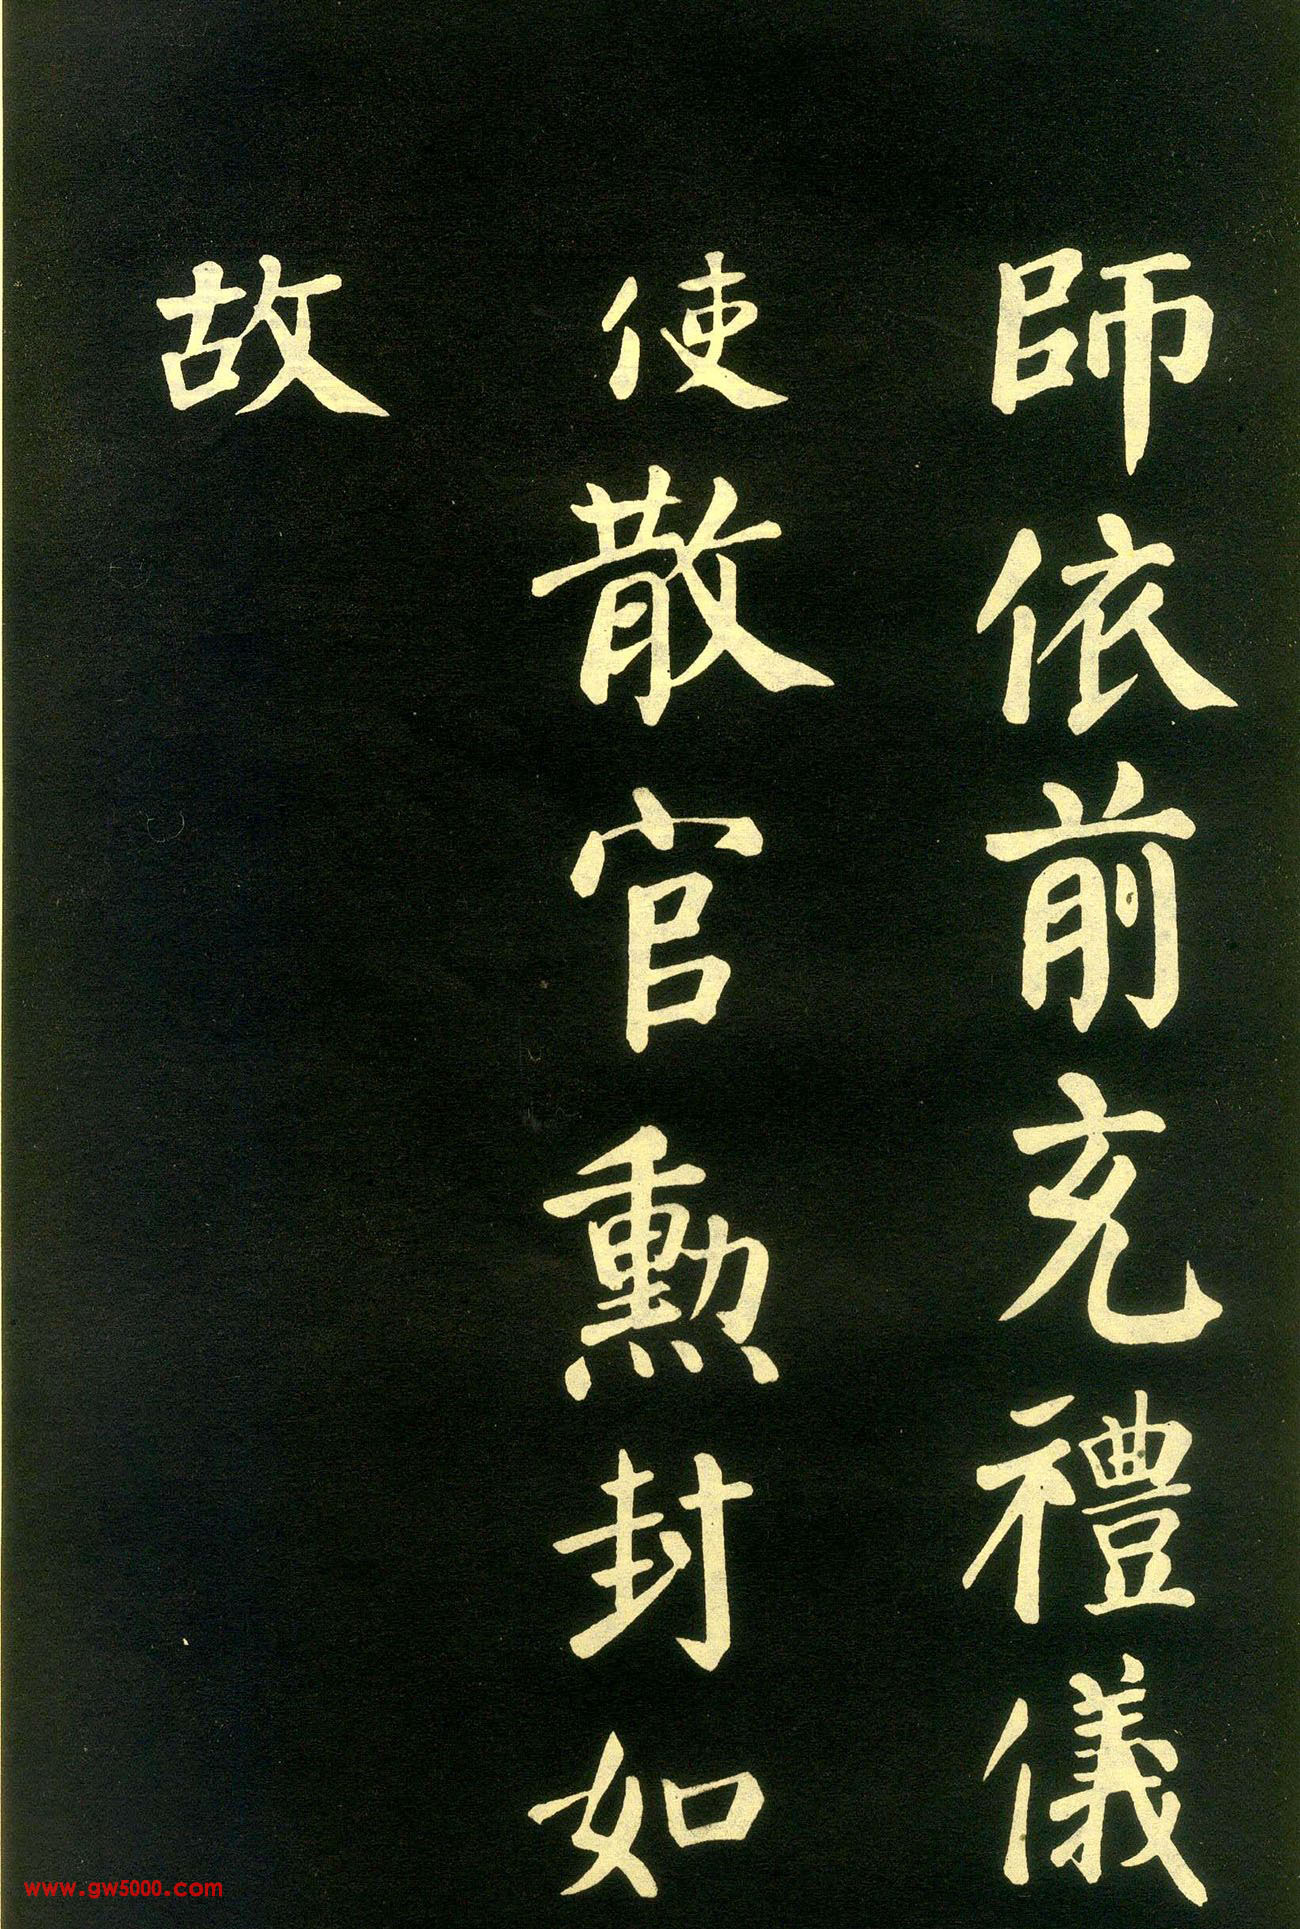 師依前充禮儀
使散官勲封如
故
www.gw5000.com